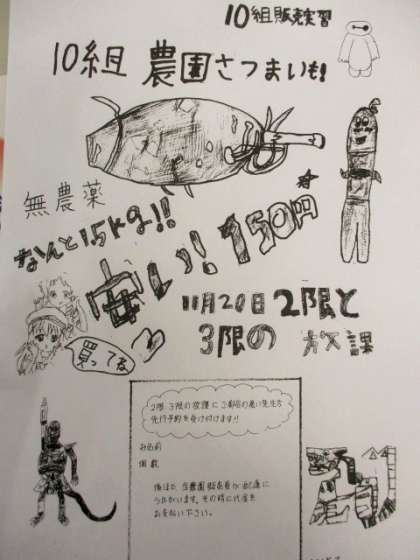 10組販売実習
10組 農園さつまいも!
無農薬
なんと1.5kg!!
安い!150円
11月20日 2限と
3限の 放課
買ってね
2限 3限の放課に ご都合の悪い先生方
先行予約を受け付けます!!
お名前
個数
後ほど、当農園 販売員が配達に
うかがいます。その時に代金を
お支払い下さい。